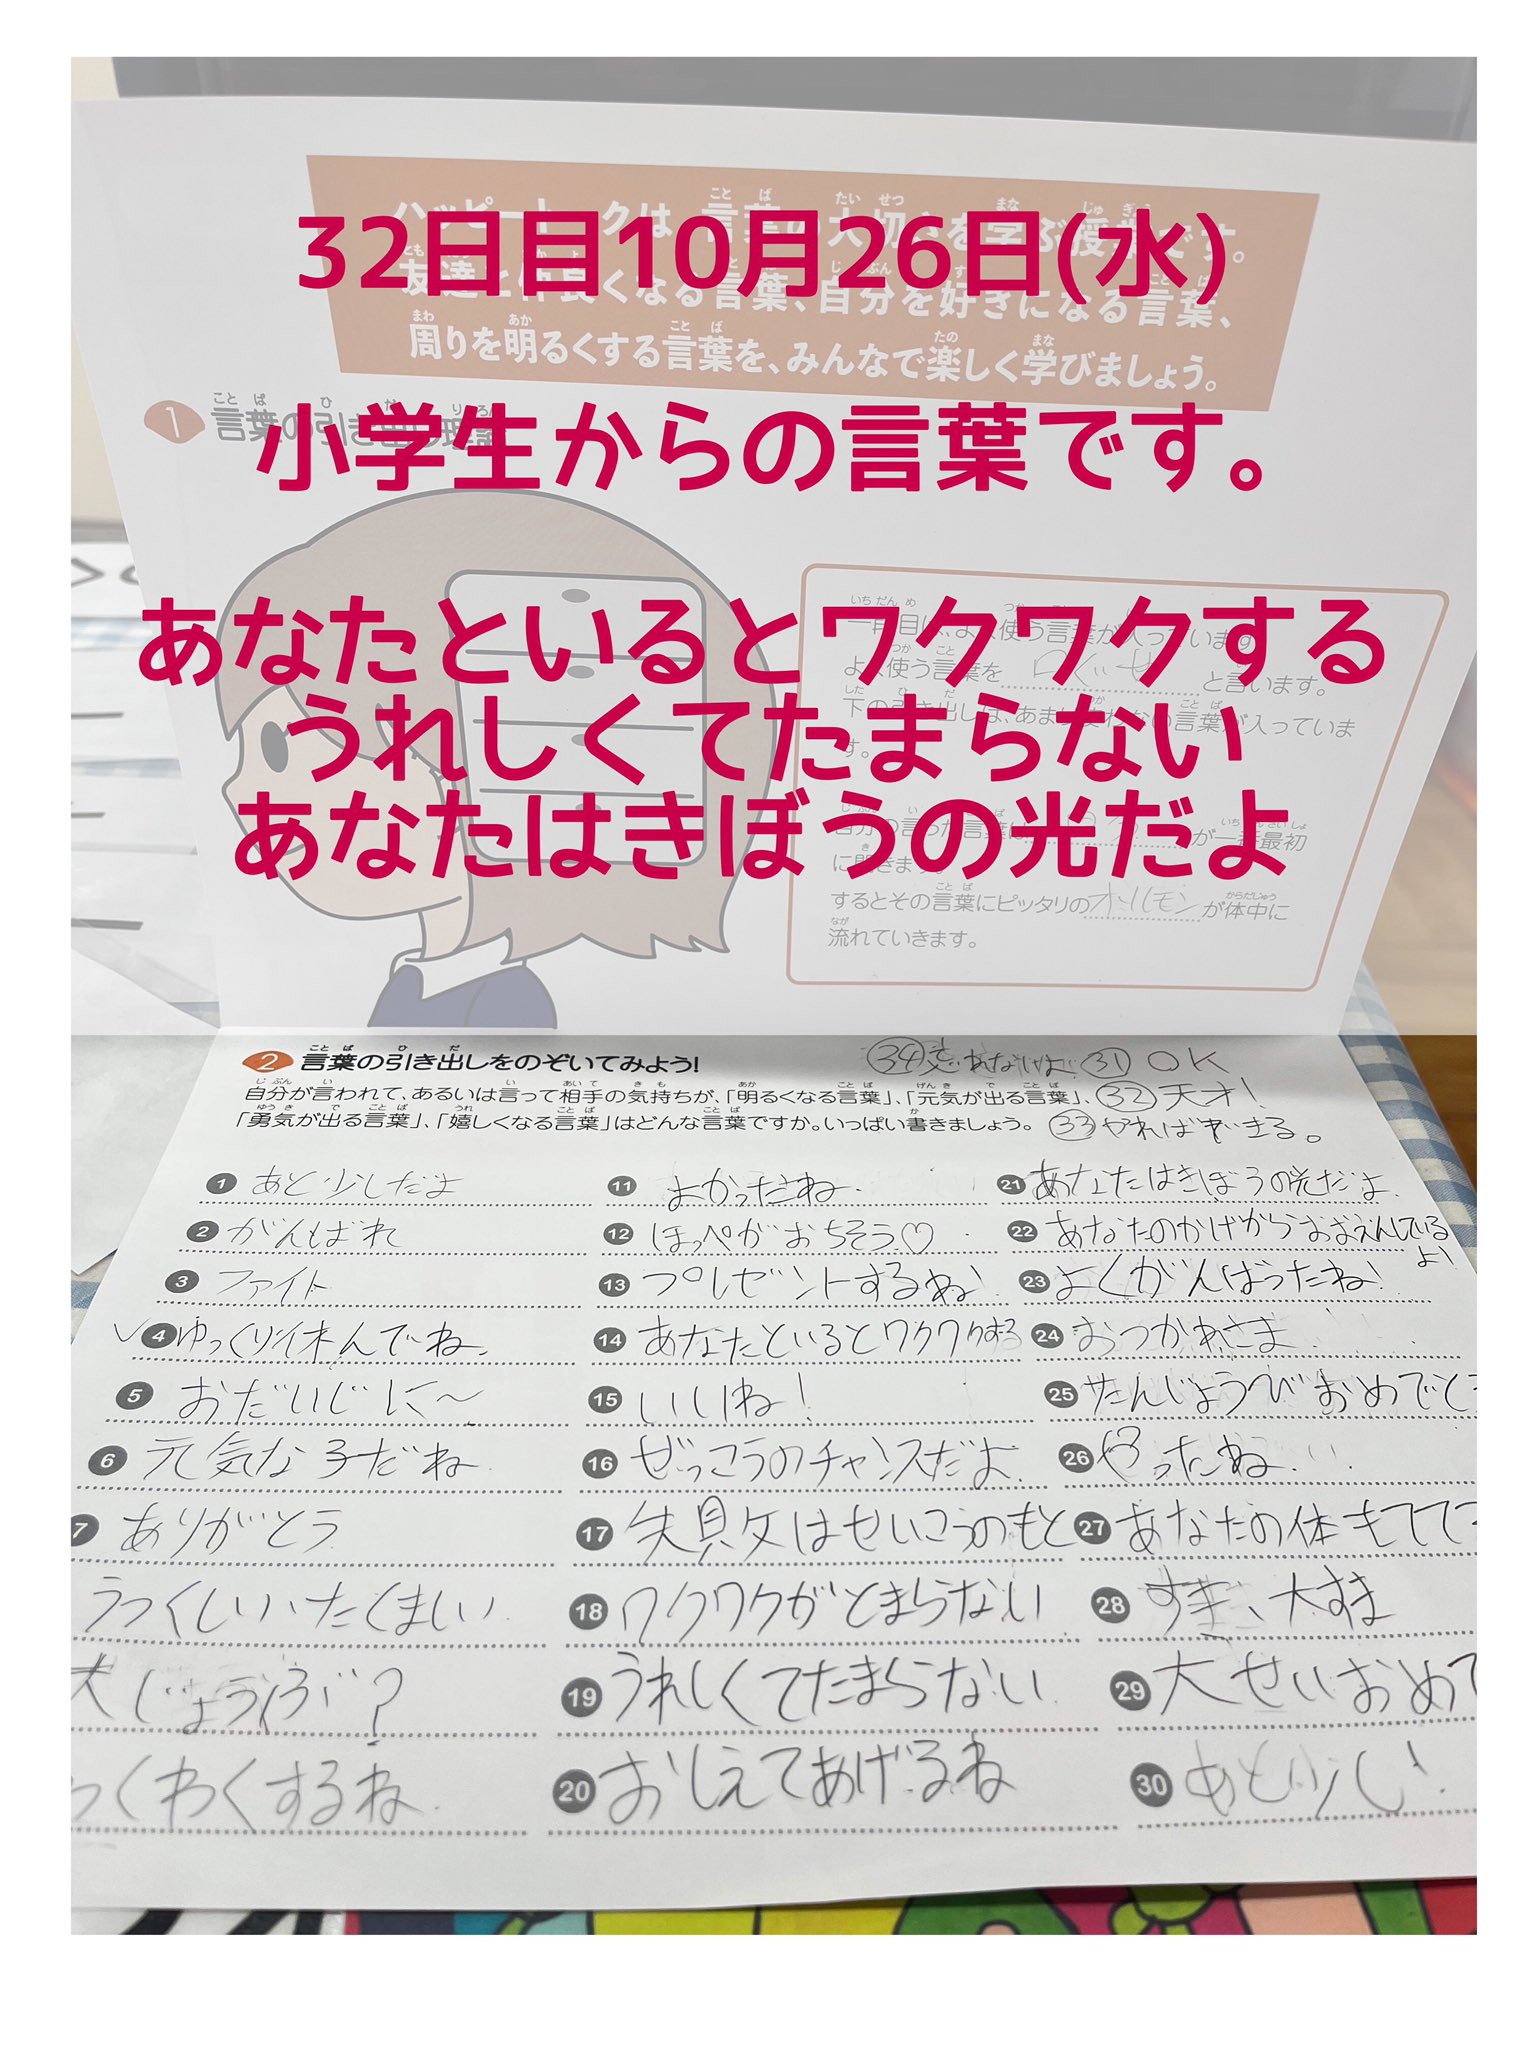 32日目10月26日(水)
小学生からの言葉です。
あなたといるとワクワクする
うれしくてたまらない
あなたはきぼうの光だよ
ハッピートークは 言葉の大切さを学ぶ授業です。
友達と仲良くなる言葉、自分を好きになる言葉、
周りを明るくする言葉を、みんなで楽しく学びましょう。
1 言葉の引き出し理論
一段目は、よく使う言葉が入っています
よく使う言葉を 口ぐせ と言います。
下の引き出しは、あまり使わない言葉が入っていま
す。
自分の言った言葉は が一番最初
に聞きます。
するとその言葉にピッタリのホルモンが体中に
流れていきます。
2 言葉の引き出しをのぞいてみよう!
自分が言われて、あるいは言って相手の気持ちが、「明るくなる言葉」、「元気が出る言葉」、
「勇気が出る言葉」、「嬉しくなる言葉」はどんな言葉ですか。いっぱい書きましょう。
31 OK
32 天才!
33 やればできる。
34 忘れないよ
1 あと少しだよ
2 がんばれ
3 ファイト
4 ゆっくり休んでね。
5 おだいじに〜
6 元気な子だね
7 ありがとう
うつくしい、たくましい
大じょうぶ?
っくわくするね
11 よかったね
12 ほっぺがおちそう♡
13 プレゼントするね!
14 あなたといるとワクワクする
15 いいね!
16 ぜっこうのチャンスだよ
17 失貝攵はせいこうのもと
18 ワクワクがとまらない
19 うれしくてたまらない
20 おしえてあげるね
21 あなたはきぼうの光だよ
22 あなたのかげからおおえんしている
よ!
23 よくがんばったね!
24 おつかれさま
25 たんじょうびおめでと
26 やったね
27 あなたの体もててて
28 すき、大すき
29 大せいおめで
30 あと少し!